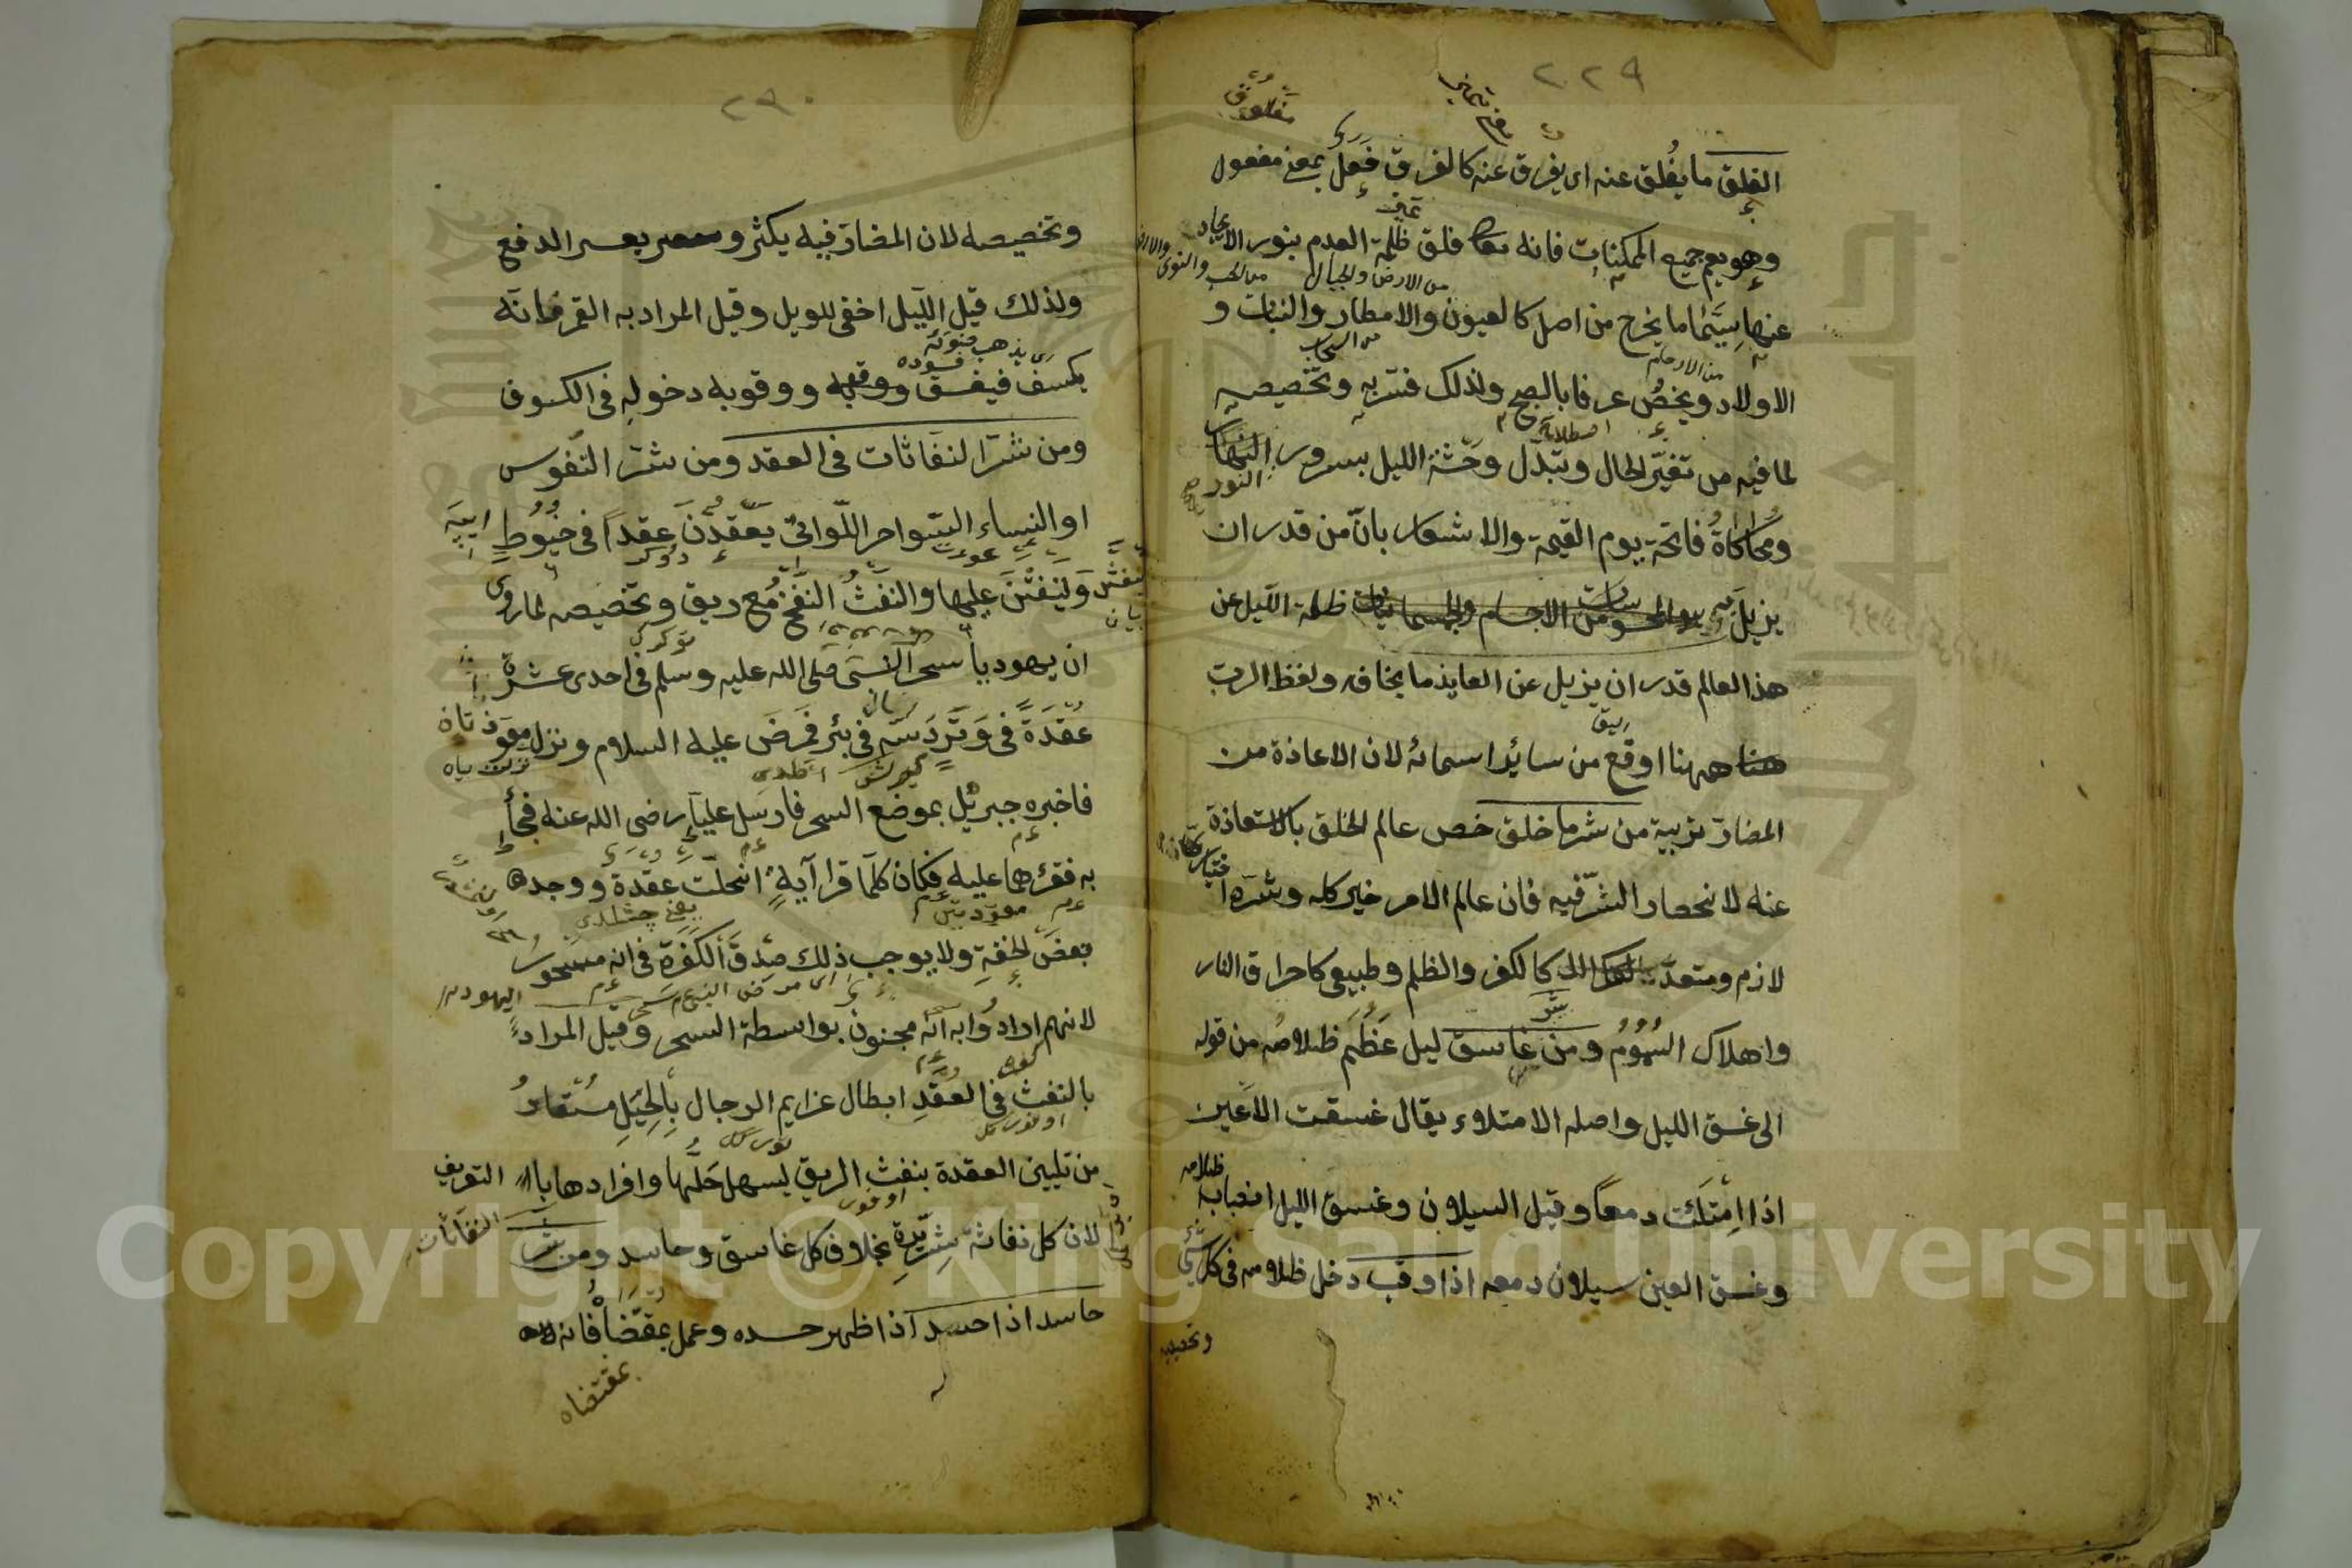 ٢٢٩
الفلق ما يفلق عنه اى يفرق عنه كالفرق فعل بمعنى مفعول
وهو يعم جميع الممكنات فانه تعالى فلق ظلمة العدم بنور الايجاد
من الارض والجبال
عنها سيما ما يخرج من اصل كالعيون والامطار والنبات و
من السحاب
من الارحام
الاولاد ويخص عرفا بالصبح ولذلك فسر به وتخصيصه
لما فيه من تغير الحال وتبدل وحشة الليل بسرور النهار
النور
ومحاكاة فاتحة يوم القيمة والاشعار بان من قدر ان
يزيل به ظلمة الليل عن
هذا العالم قدر ان يزيل عن العايذ ما يخافه ولفظ الرب
ههنا اوقع من سائر اسمائه لان الاعاذة من
المضار تربية من شر ما خلق خص عالم الخلق بالاستعاذة
عنه لانحصار الشر فيه فان عالم الامر خير كله وشره ا
ختيارى
لازم ومتعد كالكفر والظلم وطبيعى كاحراق النار
واهلاك السموم ومن شر غاسق ليل عظم ظلامه من قوله
الى غسق الليل واصله الامتلاء يقال غسقت الاعين
اذا امتلئت دمعا وقيل السيلان وغسق الليل انصباب ظلامه
وغسق العين سيلان دمعه اذا وقب دخل ظلامه فى كل شئ
وتخصيصه
٢٩٠
وتخصيصه لان المضار فيه يكثر و يعسر الدفع
ولذلك قيل الليل اخفى للويل وقيل المراد به القمر فانه
يكسف فيغسق ووقوبه دخوله فى الكسوف
ومن شر النفاثات فى العقد ومن شر النفوس
او النساء السواحر اللواتى يعقدن عقدا فى خيوط
وينفثن عليها والنفث النفخ مع ريق وتخصيصه لما روى
ان يهوديا سحر النبى صلى الله عليه وسلم فى احدى عشرة
عقدة فى وتر دسه فى بئر فمرض عليه السلام ونزل معوذتان
فاخبره جبرئيل بموضع السحر فارسل عليا رضى الله عنه فجاء
به فقرءهما عليه فكان كلما قرا آية انحلت عقدة ووجد
بعض الخفة ولا يوجب ذلك صدق الكفرة فى انه مسحور
لانهم ارادوا به انه مجنون بواسطة السحر وقيل المراد
بالنفث فى العقد ابطال عزايم الرجال بالحيل مستعار
من تليين العقدة بنفث الريق ليسهل حلها وافرادها بالتعريف
لان كل نفاثة شريرة بخلاف كل غاسق وحاسد ومن شر
النفاثات
حاسد اذا حسد اذا ظهر حسده وعمل بمقتضا فانه
بمقتضاه
Copyright © King Saud University